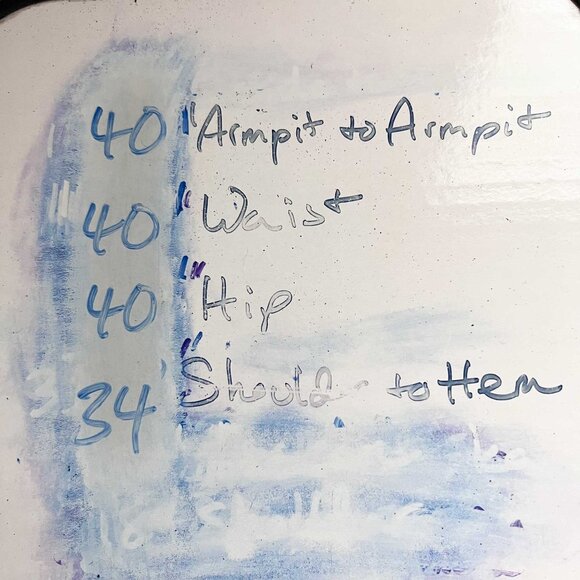 40" Armpit to Armpit
40" Waist
40" Hip
34" Shoulder to Hem